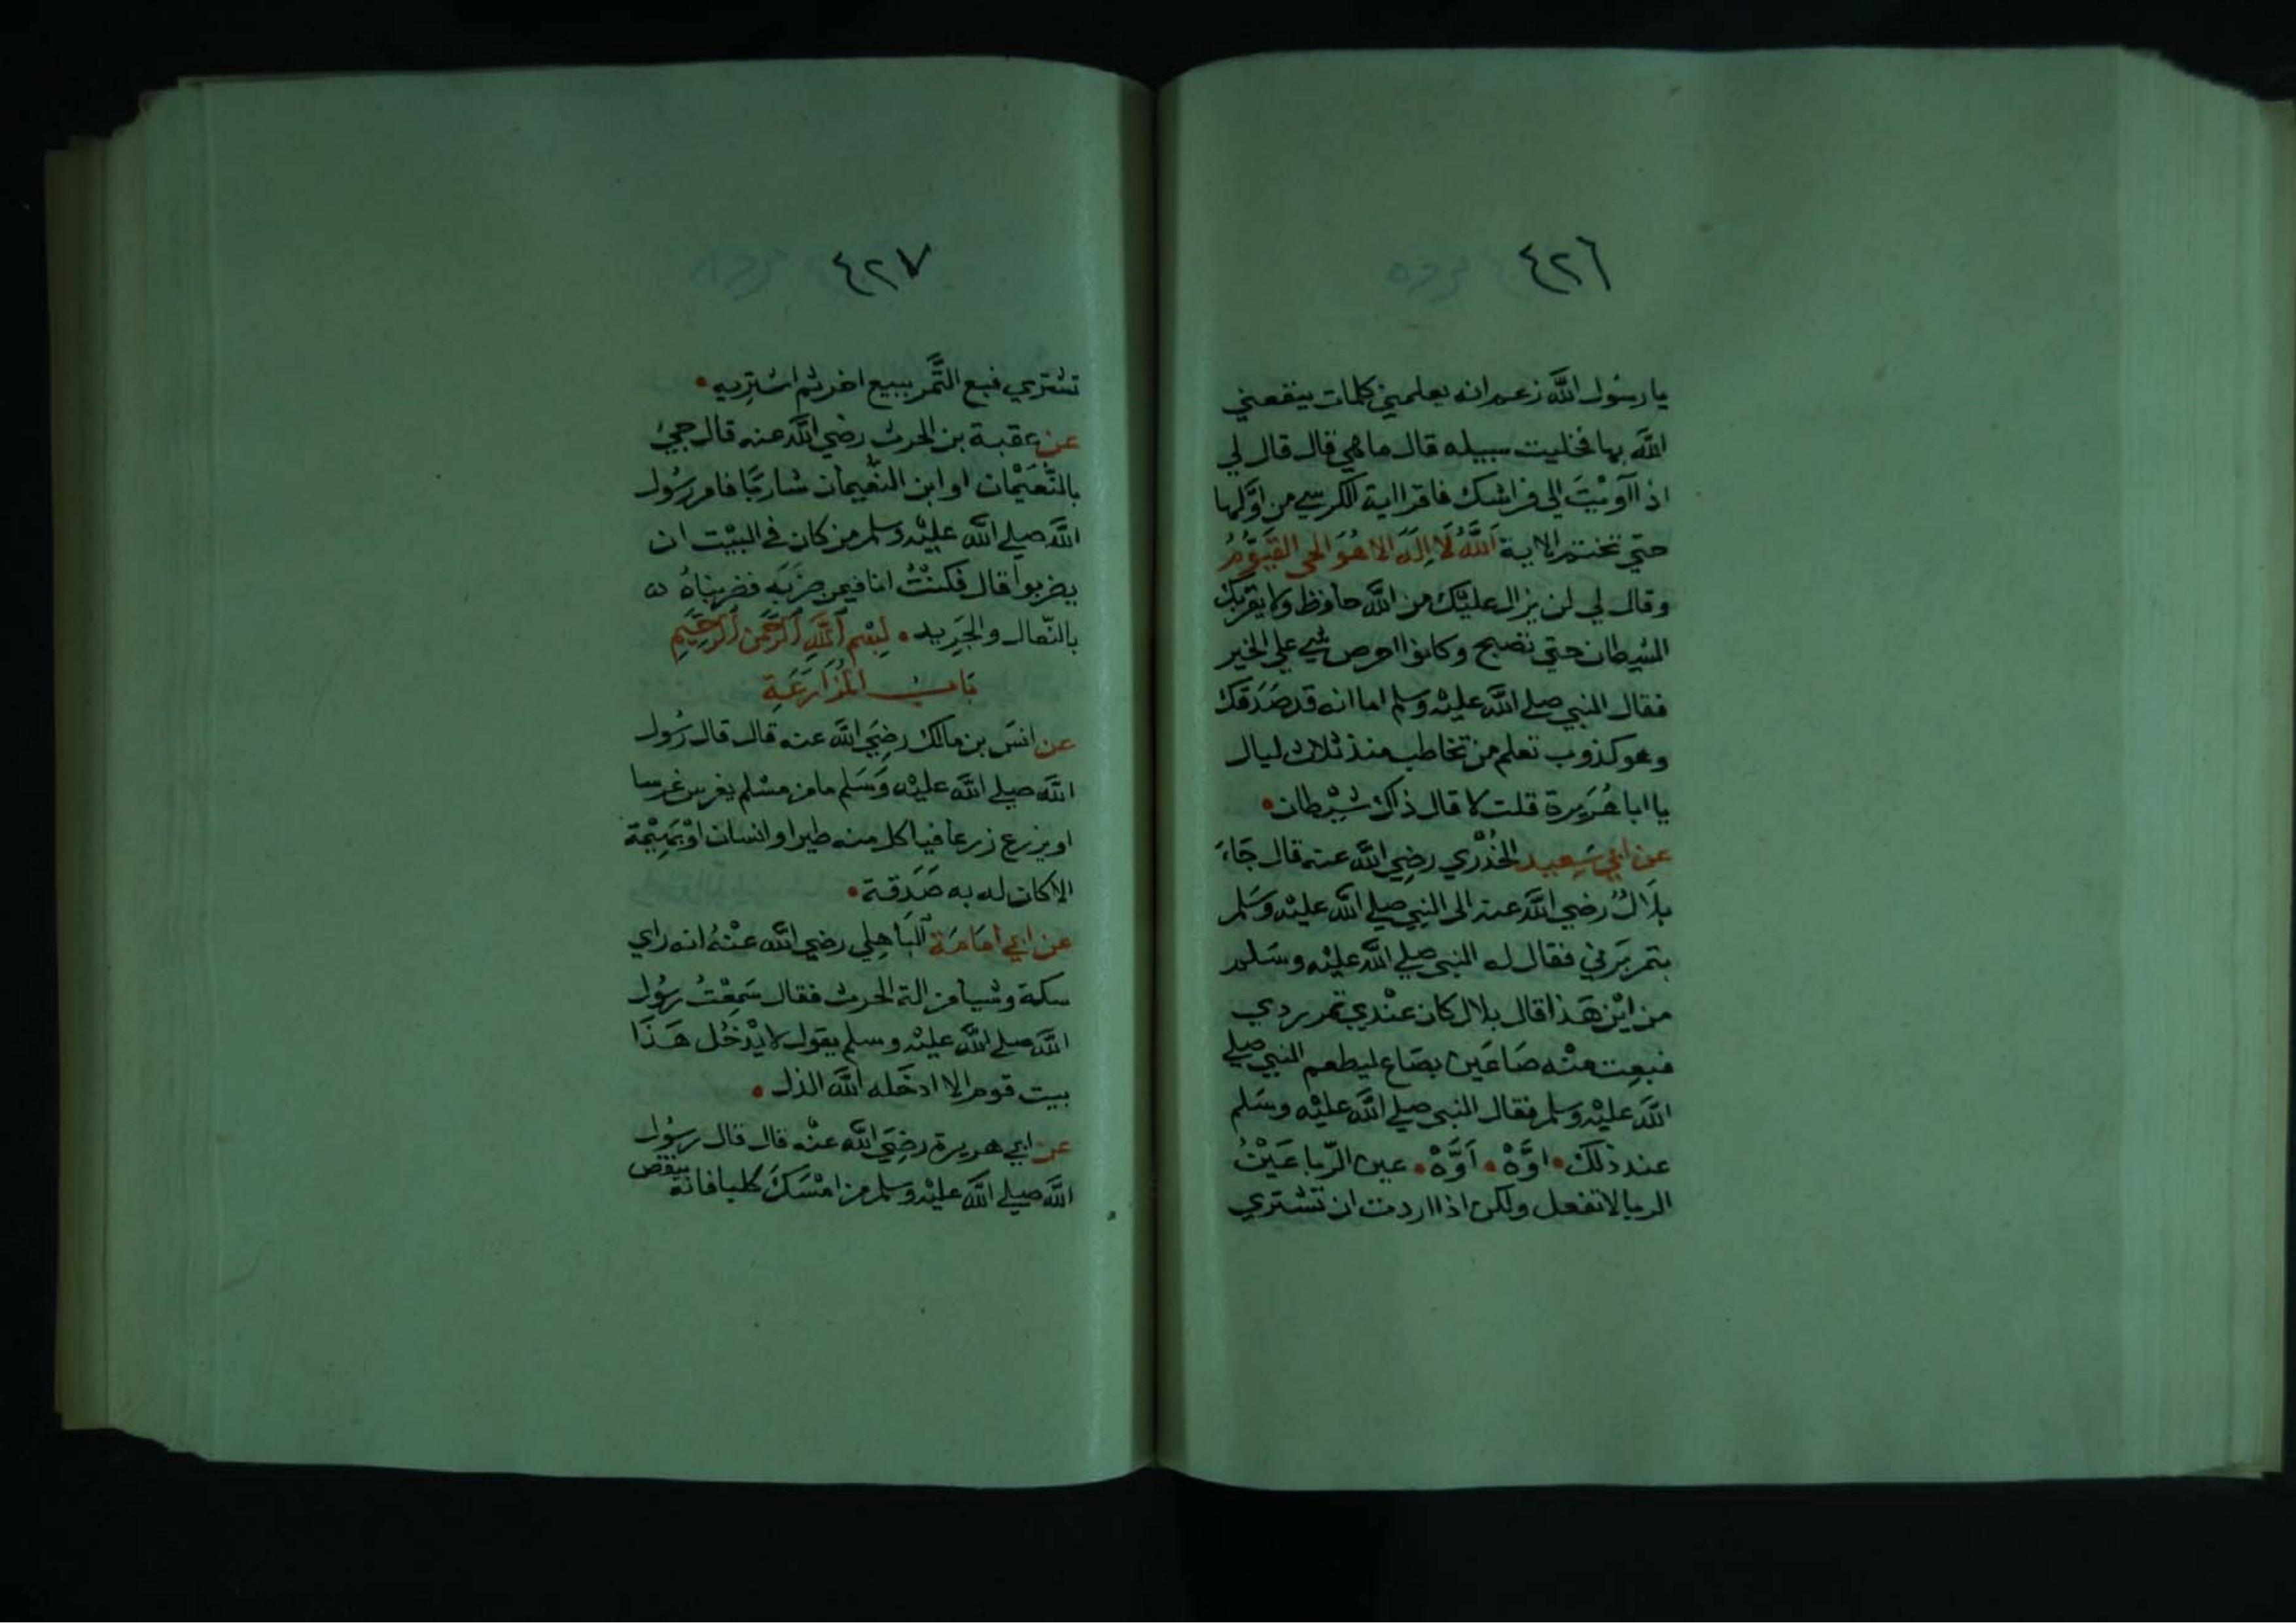 ٤٢٦
يا رسُول الله زعم انه يعلمني كلمات ينفعني
الله بها فخليت سبيله قال ما هي قال قال لي
اذا آوَيْتَ الى فراشك فاقرا اية الكرسي من اوّلها
حتي تختم الاية اَللَّهُ لَا اِلَهَ الا هُوَ الحي القَيُّومُ
وقال لي لن يزال عليْك من الله حافظ ولا يقربك
الشيطان حتي تصبح وكانوا احرص شي علي الخير
فقال النبي صلي الله عليْه وسلم اما انه قد صَدَقَكَ
وهو كذوب تعلم من تخاطب منذ ثلاث ليال
يا ابا هُرَيرة قلت لا قال ذاك شيْطان
عن ابي سَعِيد الخُدْري رضِي الله عنه قال جَاءَ
بلَالُ رضي الله عنه الى النبي صلي الله عليْه وسَلم
بتمر بَرني فقال له النبي صلي الله عليْه وسَلم
من ايْن هَذا قال بلال كان عنْدي تمر ردي
فبعِت منْه صَاعَين بصَاع ليطعم النبي صلي
الله عليْه وسلم فقال النبي صلي الله عليْه وسَلم
عند ذلك اوَّهْ اَوَّهْ عين الرّبا عَيْنُ
الربا لا تفعل ولكن اذا اردت ان تشتري
٤٢٧
تشتري فبع التَّمر ببيع اخر ثم اشتِريه
عن عقبة بن الحرث رضي الله عنه قال جيئ
بالنُّعَيْمَان او ابن النُّعيمان شاربًا فامر رسُول
الله صلي الله عليْه وسلم من كان في البيْت ان
يضربوا قال فكنْتُ انا فيمن ضرَبَه فضربناهُ
بالنّعال والجَرِيد بِسْمِ اللَّهِ الرَّحْمَنِ الرَّحِيمِ
بَابُ المُزَارَعَةِ
عن انسَ بن مالك رضِيَ الله عنه قال قال رسُول
الله صلي الله عليْه وَسَلم ما من مسْلم يغرس غرسا
او يزرع زرعا فياكل منه طير او انسان اوْ بَهِيْمَة
الا كان له به صَدَقة
عن ابي اُمَامَة البَاهِلي رضي الله عنْهُ انه راي
سكة وشيا من الة الحرث فقال سَمِعْتُ رسُول
الله صلي الله عليْه وسلم يقول لا يَدْخُل هَذَا
بيت قوم الا ادخَله الله الذل
عن ابي هريرة رضِيَ الله عنْه قال قال رسُول
الله صلي الله عليْه وسلم من امْسَكَ كلبا فانهُ ينقص